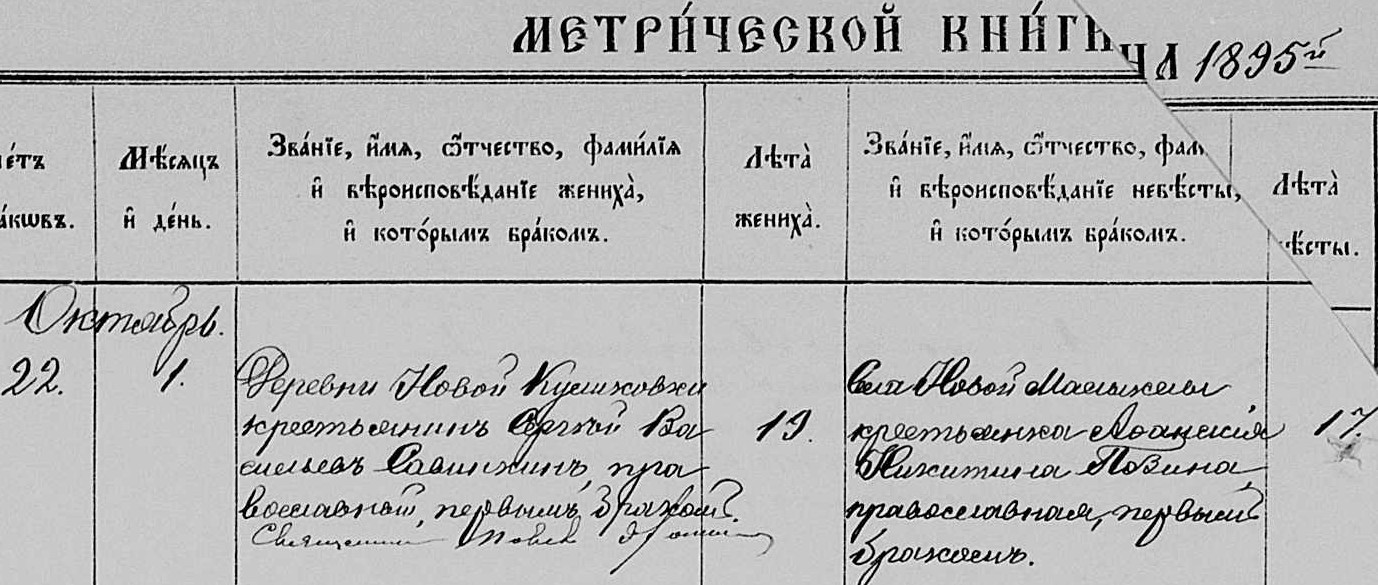 МЕТРИ́ЧЕСКОЙ КНИ́ГИ
НА 1895й
ЧЕТЪ
РА́КѠВЪ.
МѢ́СЯЦЪ
И ДЕ́НЬ.
ЗВА́НІЕ, И́МЯ, Ѿ́ТЧЕСТВО, ФАМИ́ЛІЯ
И ВѢРОИСПОВѢ́ДАНІЕ ЖЕНИХА̀,
И КОТО́РЫМЪ БРА́КОМЪ.
ЛѢТА̀
ЖЕНИХА̀.
ЗВА́НІЕ, И́МЯ, Ѿ́ТЧЕСТВО, ФАМ
И ВѢРОИСПОВѢ́ДАНІЕ НЕВѢ́СТЫ,
И КОТО́РЫМЪ БРА́КОМЪ.
ЛѢТА̀
ѢСТЫ.
Октябрь.
22.
1.
Деревни Новой
крестьянинъ Сергѣй Ва
сильевъ Савинкинъ, пра
вославной, первымъ бракомъ.
Священникъ
19.
Села Новой Малыклы
крестьянка
Никитина Позина,
православная, первымъ
бракомъ.
17